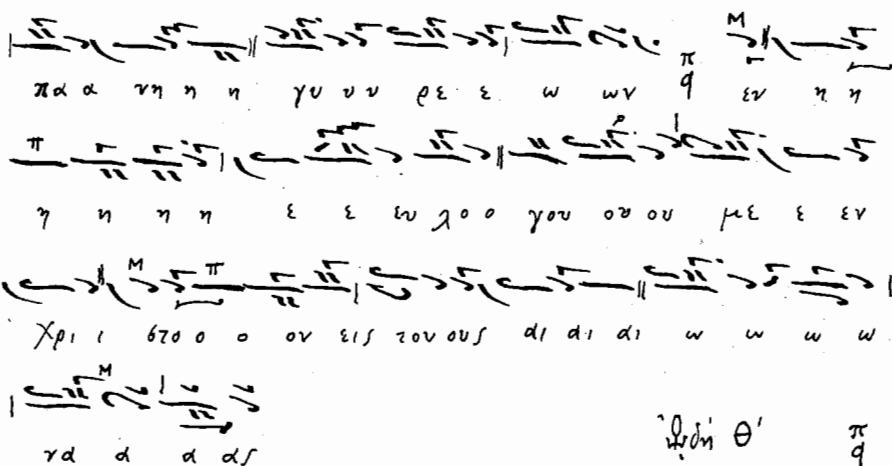 πα α νη η η γυ υ υ ρε ε ω ων π q εν η η
η η η η ε ε ευ λο ο γου ου ου με ε εν
Χρι ι στο ο ο ον εις του ους αι αι αι ω ω ω ω
να α α ας
ᾨδὴ Θ' π q